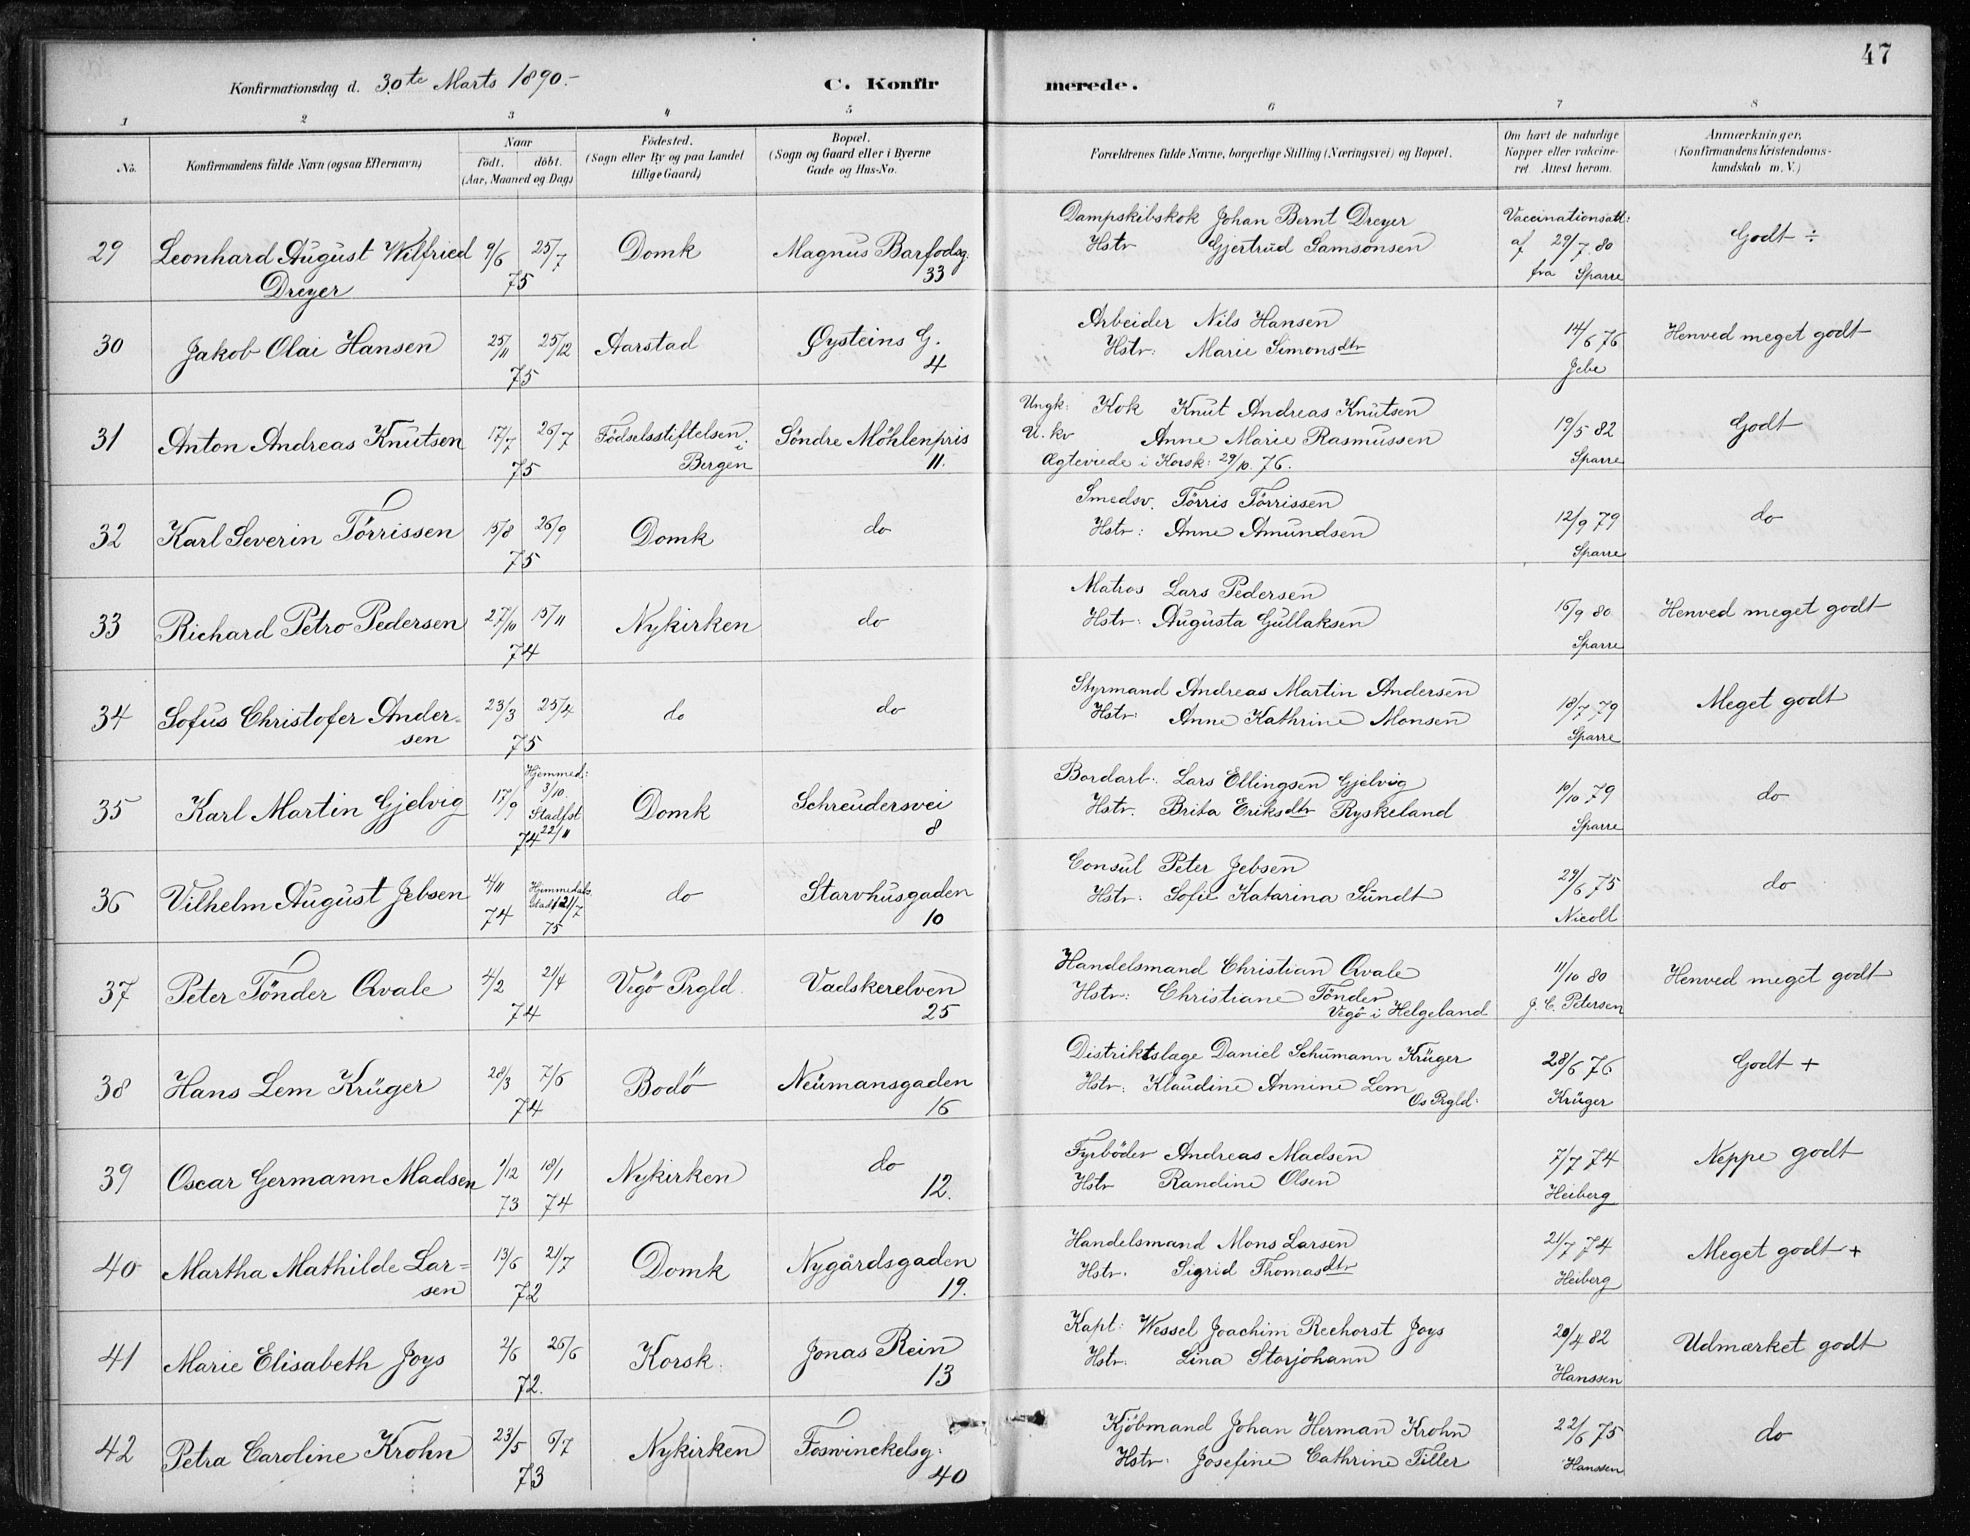 47
Konfirmationsdag d. 30te Marts 1890.-
C. Konfirmerede.
1 2 3 4 5 6 7 8
No.
Konfirmandens fulde Navn (ogsaa Efternavn)
Naar
født. døbt.
(Aar, Maaned og Dag)
Fødested.
(Sogn eller By og paa Landet
tillige Gaard)
Bopæl.
(Sogn og Gaard eller i Byerne
Gade og Hus-No.
Forældrenes fulde Navne, borgerlige Stilling (Næringsvei) og Bopæl.
Om havt de naturlige
Kopper eller vakcine-
ret Attest herom.
Anmærkninger,
(Konfirmandens Kristendoms-
kundskab m. V.)
29 Leonhard August Wilfried 9/6 25/7 Domk Magnus Barfodsg.
Dreyer 75 33
Dampskibskok Johan Bernt Dreyer
Hstr Gjertrud Samsonsen
Vaccinationsatt:
af 29/7 80
fra Sparre
Godt ÷
30 Jakob Olai Hansen 25/11 25/12 Aarstad Øysteins G.
75 4
Arbeider Nils Hansen
Hstr: Marie Simonsdtr
14/6 76
Jebe
Henved meget godt
31 Anton Andreas Knutsen 17/7 26/7 Födselsstiftelsen i Søndre Möhlenpris
75 Bergen 11.
Ungk: Kok Knut Andreas Knutsen
U. kv Anne Marie Rasmussen
Ægteviede i Korsk: 29/10. 76.
19/5 82
Sparre
Godt
32 Karl Severin Törrissen 15/8 26/9 Domk do
75
Smedsv. Törris Törrissen
Hstr: Anne Amundsen
12/9 79
Sparre
do
33 Richard Petro Pedersen 27/10 15/11 Nykirken do
74
Matros Lars Pedersen
Hstr: Augusta Gullaksen
16/9 80
Sparre
Henved meget godt
34 Sofus Christofer Ander- 23/3 25/4 do do
sen 75
Styrmand Andreas Martin Andersen
Hstr: Anne Kathrine Monsen
18/7 79
Sparre
Meget godt
35 Karl Martin Gjelvig 17/9 Hjemmed: 3/10. Domk Schreudersvei
Stadfst 8
74 22/11
Bordarb. Lars Ellingsen Gjelvig
Hstr. Brita Eriksdtr Ryskeland
10/10 79
Sparre
do
36 Vilhelm August Jebsen 4/11 Hjemmedøbt do Starvhusgaden
74 Stadf. 21/7 10
75
Consul Peter Jebsen
Hstr: Sofie Katarina Sundt
29/6 75
Nicoll
do
37 Peter Tönder Qvale 4/2 21/4 Vegö Prgld. Vadskerelven
74 25
Handelsmand Christian Qvale
Hstr: Christiane Tönder
Vegö i Helgeland
11/10 80
J. C. Petersen
Henved meget godt
38 Hans Lem Krüger 28/3 7/6 Bodö Neumansgaden
74 16
Distriktslæge Daniel Schumann Krüger
Hstr: Klaudine Annine Lem
Os Prgld:
28/6 76
Krüger
Godt +
39 Oscar Germann Madsen 1/12 18/1 Nykirken do
73 74 12.
Fyrböder Andreas Madsen
Hstr Randine Olsen
7/7 74
Heiberg
Neppe godt
40 Martha Mathilde Lar= 13/6 21/7 Domk Nygårdsgaden
sen 72 19.
Handelsmand Mons Larsen
Hstr. Sigrid Thomasdtr
21/7 74
Heiberg
Meget godt +
41 Marie Elisabeth Joys 2/6 26/6 Korsk. Jonas Rein
72. 13
Kapt: Wessel Joachim Reehorst Joys
Hstr. Lina Storjohann
20/4 82
Hanssen
Udmærket godt
42 Petra Caroline Krohn 23/5 6/7 Nykirken Foswinckelsg:
73 40
Kjöbmand Johan Herman Krohn
Hstr. Josefine Cathrine Tiller
22/6 75
Hanssen
do